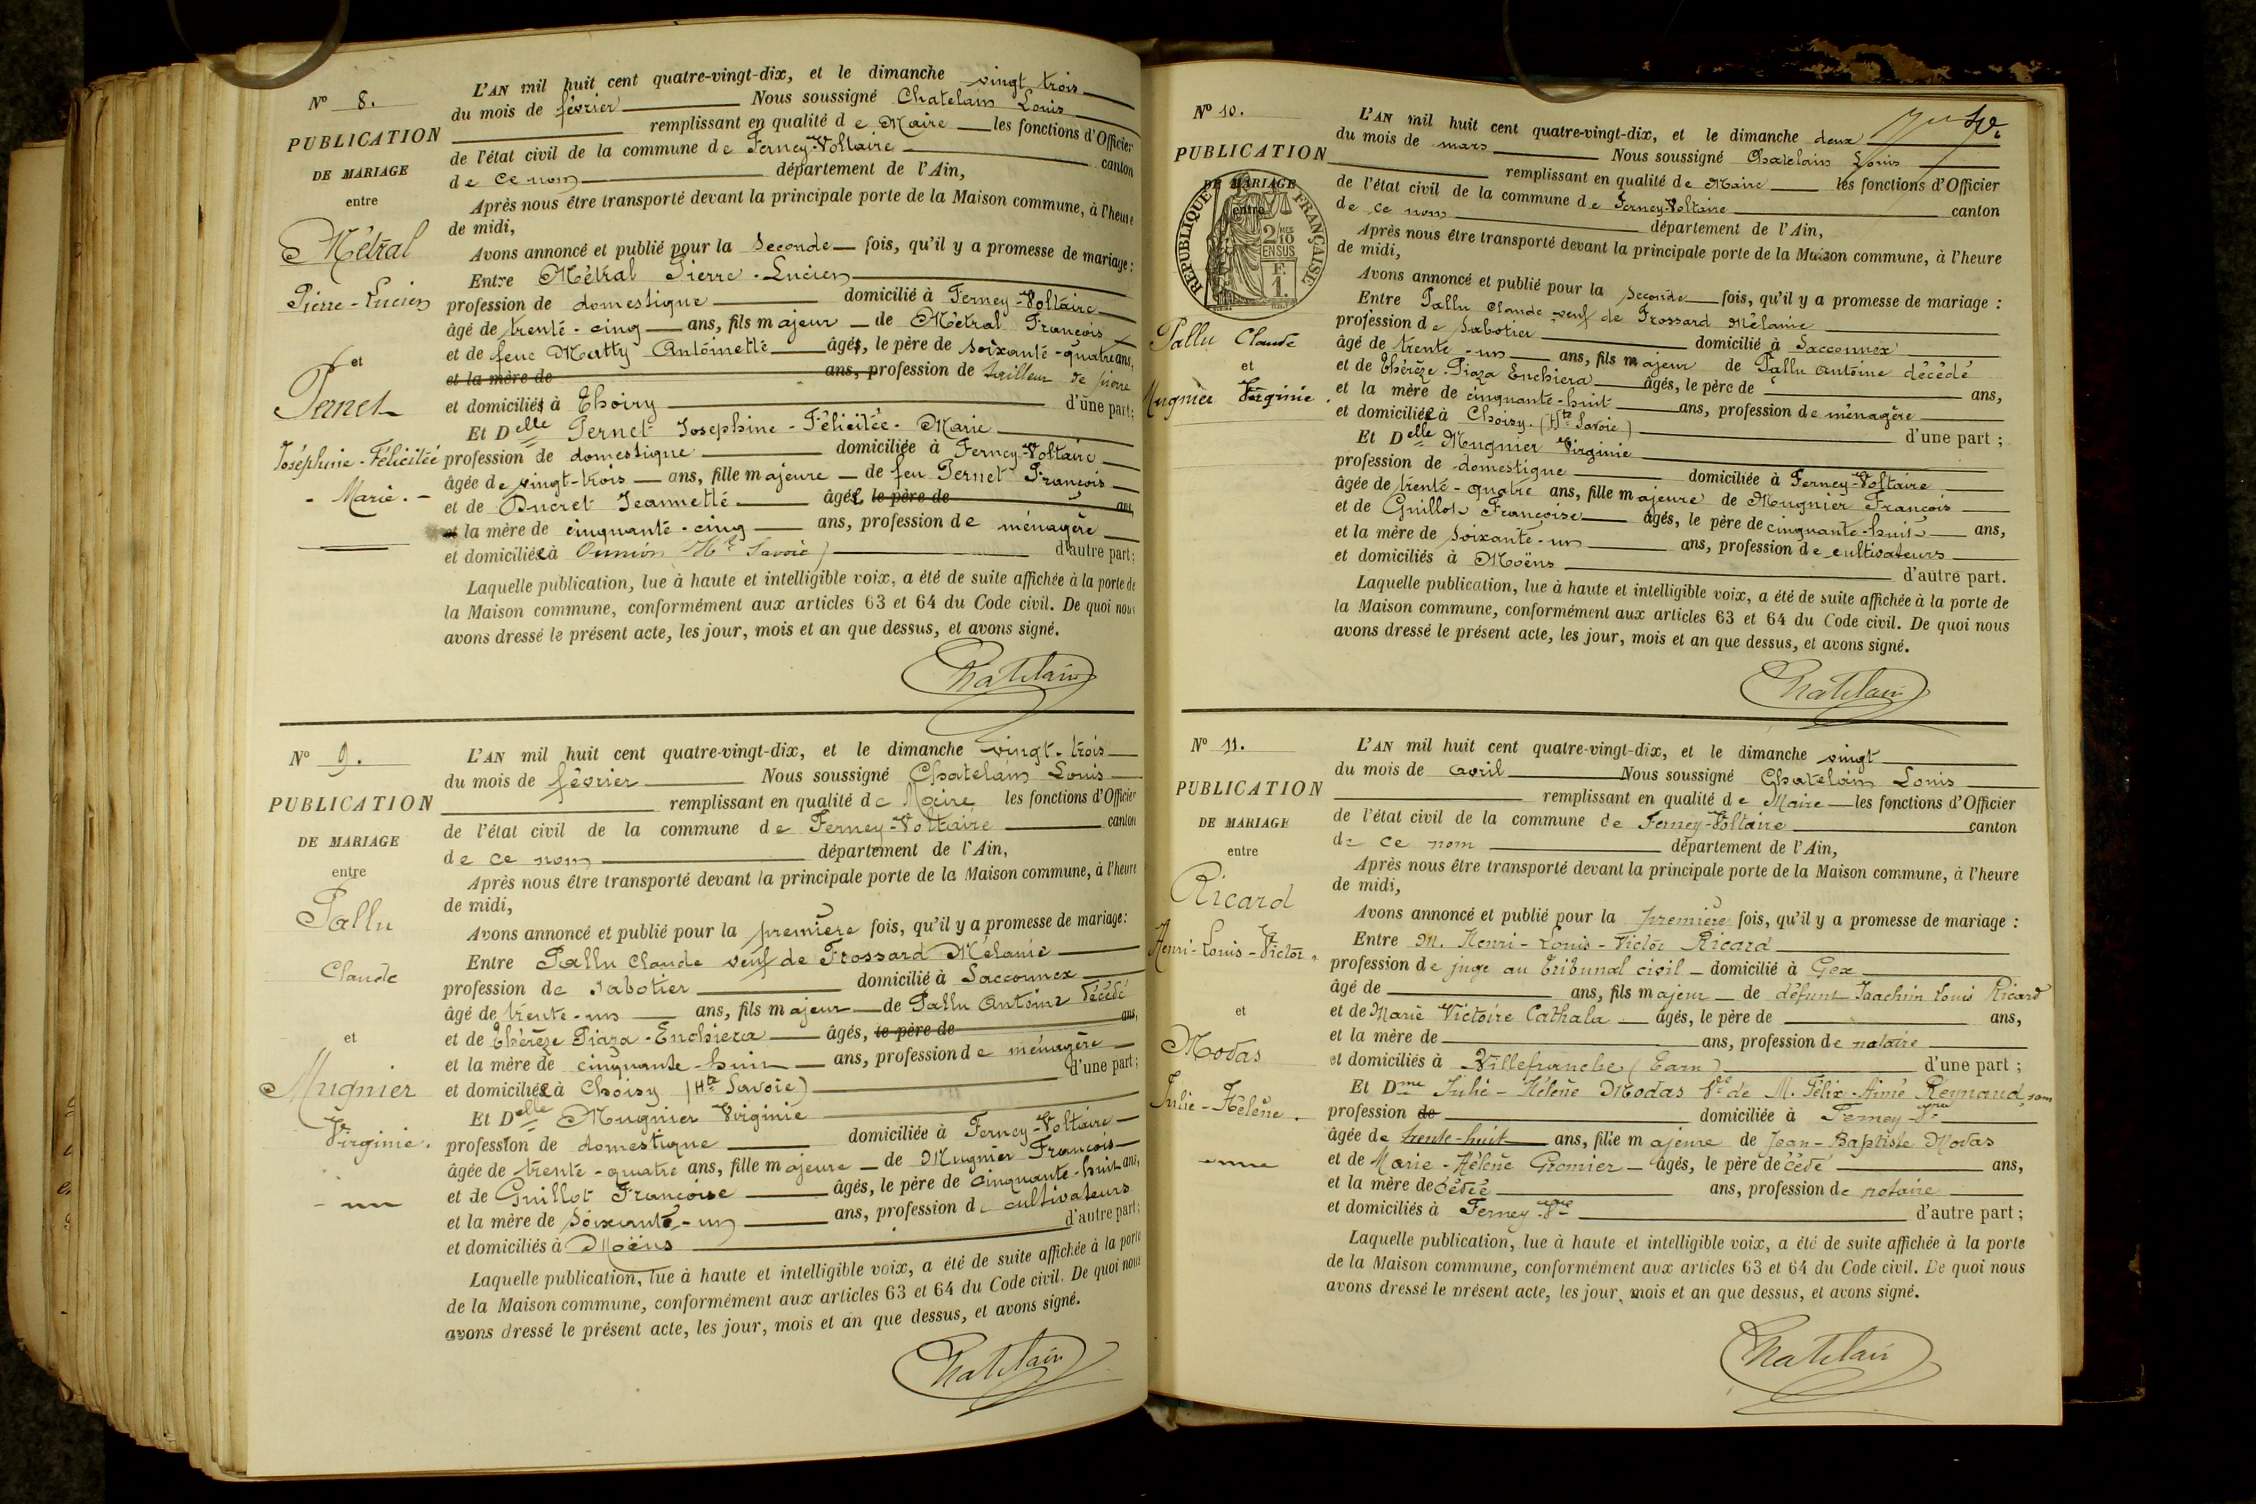 N° 8.
PUBLICATION
DE MARIAGE
entre
Métral
Pierre-Lucien
et
Pernet
Joséphine-Félicitée
- Marie. -
L'AN mil huit cent quatre-vingt-dix, et le dimanche vingt trois
du mois de février Nous soussigné Chatelain Louis
remplissant en qualité de Maire les fonctions d'Officier
de l'état civil de la commune de Ferney-Voltaire canton
de ce nom département de l'Ain,
Après nous être transporté devant la principale porte de la Maison commune, à l'heure
de midi,
Avons annoncé et publié pour la seconde fois, qu'il y a promesse de mariage :
Entre Métral Pierre-Lucien
profession de domestique domicilié à Ferney-Voltaire
âgé de trente-cinq ans, fils majeur de Métral François
et de feue Matty Antoinette âgés, le père de soixante-quatre ans,
et la mère de ans, profession de tailleur de pierre
et domiciliés à Thoiry d'une part;
Et Delle Pernet Josephine-Félicitée-Marie
profession de domestique domiciliée à Ferney-Voltaire
âgée de vingt-trois ans, fille majeure de feu Pernet François
et de Ducret Jeannette âgée, le père de ans,
et la mère de cinquante-cinq ans, profession de ménagère
et domiciliée à Onnion Hte Savoie) d'autre part;
Laquelle publication, lue à haute et intelligible voix, a été de suite affichée à la porte de
la Maison commune, conformément aux articles 63 et 64 du Code civil. De quoi nous
avons dressé le présent acte, les jour, mois et an que dessus, et avons signé.
Chatelain
N° 9.
PUBLICATION
DE MARIAGE
entre
Pallu
Claude
et
Mugnier
Virginie.
L'AN mil huit cent quatre-vingt-dix, et le dimanche vingt-trois
du mois de février Nous soussigné Chatelain Louis
remplissant en qualité de Maire les fonctions d'Officier
de l'état civil de la commune de Ferney-Voltaire canton
de ce nom département de l'Ain,
Après nous être transporté devant la principale porte de la Maison commune, à l'heure
de midi,
Avons annoncé et publié pour la première fois, qu'il y a promesse de mariage :
Entre Pallu Claude veuf de Frossard Mélanie
profession de sabotier domicilié à Sacconnex
âgé de trente-un ans, fils majeur de Pallu Antoine décédé
et de Thérèze Piaza-Enchiera âgés, le père de ans,
et la mère de cinquante-huit ans, profession de ménagère
et domiciliée à Choisy (Hte Savoie) d'une part;
Et Delle Mugnier Virginie
profession de domestique domiciliée à Ferney-Voltaire
âgée de trente-quatre ans, fille majeure de Mugnier François
et de Guillot Françoise âgés, le père de cinquante-huit ans,
et la mère de soixante-un ans, profession de cultivateurs
et domiciliés à Moëns d'autre part;
Laquelle publication, lue à haute et intelligible voix, a été de suite affichée à la porte
de la Maison commune, conformément aux articles 63 et 64 du Code civil. De quoi nous
avons dressé le présent acte, les jour, mois et an que dessus, et avons signé.
Chatelain
N° 10.
PUBLICATION
DE MARIAGE
entre
RÉPUBLIQUE FRANÇAISE
2/10
EN SUS
F.
1.
Pallu Claude
et
Mugnier Virginie.
L'AN mil huit cent quatre-vingt-dix, et le dimanche deux
du mois de mars Nous soussigné Chatelain Louis
remplissant en qualité de Maire les fonctions d'Officier
de l'état civil de la commune de Ferney-Voltaire canton
de ce nom département de l'Ain,
Après nous être transporté devant la principale porte de la Maison commune, à l'heure
de midi,
Avons annoncé et publié pour la seconde fois, qu'il y a promesse de mariage :
Entre Pallu Claude veuf de Frossard Mélanie
profession de sabotier domicilié à Sacconnex
âgé de trente-un ans, fils majeur de Pallu Antoine décédé
et de Thérèze Piaza Enchiera âgés, le père de ans,
et la mère de cinquante-huit ans, profession de ménagère
et domiciliée à Choisy (Hte Savoie) d'une part ;
Et Delle Mugnier Virginie
profession de domestique domiciliée à Ferney-Voltaire
âgée de trente-quatre ans, fille majeure de Mugnier François
et de Guillot Françoise âgés, le père de cinquante-huit ans,
et la mère de soixante-un ans, profession de cultivateurs
et domiciliés à Moëns d'autre part.
Laquelle publication, lue à haute et intelligible voix, a été de suite affichée à la porte de
la Maison commune, conformément aux articles 63 et 64 du Code civil. De quoi nous
avons dressé le présent acte, les jour, mois et an que dessus, et avons signé.
Chatelain
N° 11.
PUBLICATION
DE MARIAGE
entre
Ricard
Henri-Louis-Victor.
et
Modas
Julie-Hélène.
L'AN mil huit cent quatre-vingt-dix, et le dimanche vingt
du mois de avril Nous soussigné Chatelain Louis
remplissant en qualité de Maire les fonctions d'Officier
de l'état civil de la commune de Ferney-Voltaire canton
de ce nom département de l'Ain,
Après nous être transporté devant la principale porte de la Maison commune, à l'heure
de midi,
Avons annoncé et publié pour la première fois, qu'il y a promesse de mariage :
Entre M. Henri-Louis-Victor Ricard
profession de juge au tribunal civil domicilié à Gex
âgé de ans, fils majeur de défunt Joachim Louis Ricard
et de Marie Victoire Cathala âgés, le père de ans,
et la mère de ans, profession de notaire
et domiciliés à Villefranche (Tarn) d'une part ;
Et Dme Julie-Hélène Modas Vve de M. Félix-Aimé Reynaud, sans
profession de domiciliée à Ferney-Vre
âgée de trente-huit ans, fille majeure de Jean-Baptiste Modas
et de Marie-Hélène Gromier âgés, le père décédé ans,
et la mère décédée ans, profession de notaire
et domiciliés à Ferney-Vre d'autre part ;
Laquelle publication, lue à haute et intelligible voix, a été de suite affichée à la porte
de la Maison commune, conformément aux articles 63 et 64 du Code civil. De quoi nous
avons dressé le présent acte, les jour, mois et an que dessus, et avons signé.
Chatelain